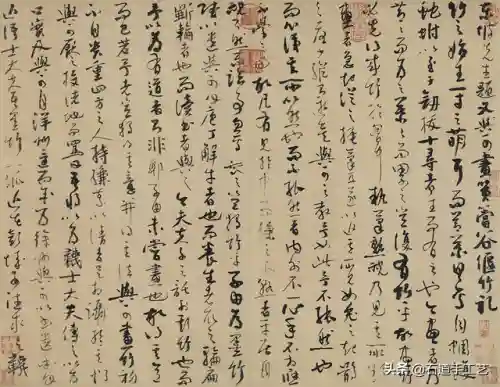 東坡先生題文與可畫篔簹谷偃竹記
竹之始生一寸之萌耳而節葉具焉自蜩腹
蛇蚹以至于劍拔十尋者生而有之也今畫者乃
節節而為之葉葉而累之豈復有竹乎故畫竹
必先得成竹於胸中執筆熟視乃見其所欲
畫者急起從之振筆直遂以追其所見如兔起鶻
落少縱則逝矣與可之教予如此予不能然也
而心識其所以然而不能然者內外不一心手不相應
不學之過也故凡有見於中而操之不熟者平居自
視了然而臨事忽焉喪之豈獨竹乎子由為墨竹
賦以遺與可曰庖丁解牛者也而養生者取之輪扁
斲輪者也而讀書者與之今夫夫子之託於斯竹也而
予以為有道者則非耶子由未嘗畫也故得其意
而已若予者豈獨得其意并得其法與可畫竹初
不自貴重四方之人持縑素以請者足相躡於其門
與可厭之投諸地而罵曰吾將以為襪士大夫傳之以為
口實及與可自洋州還而余為徐州與可以書遺余曰
近語士大夫吾墨竹一派近在彭城可往求之襪
@石道手工艺